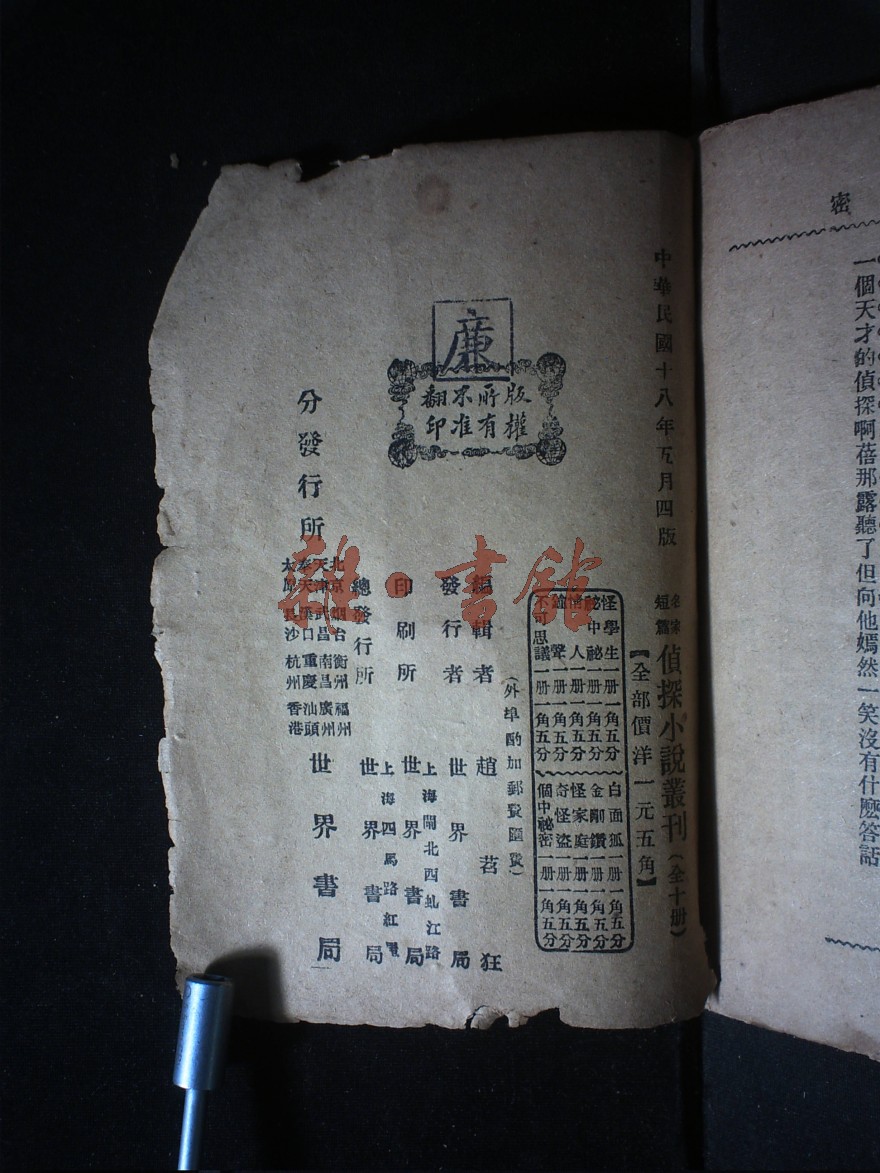 密
一個天才的偵探啊蓓那露聽了但向他嫣然一笑沒有什麼答話
中華民國十八年五月四版
名家短篇偵探小說叢刊(全十册)
【全部價洋一元五角】
怪學生一册一角五分
祕中祕一册一角五分
情人一册一角五分
聲一册一角五分
不可思議一册一角五分
白面狐一册一角五分
金剛鑽一册一角五分
怪家庭一册一角五分
奇怪盜一册一角五分
個中祕密一册一角五分
(外埠酌加郵費匯費)
廉
版權
所有
不准
翻印
編輯者 趙苕狂
發行者 世界書局
上海閘北四虬江路
印刷所 世界書局
上海四馬路紅屋
總發行所 世界書局
分發行所
北京 烟台 衡州 福州
天津 武昌 南昌 廣州
奉天 漢口 重慶 汕頭
太原 長沙 杭州 香港
世界書局
雜·書館